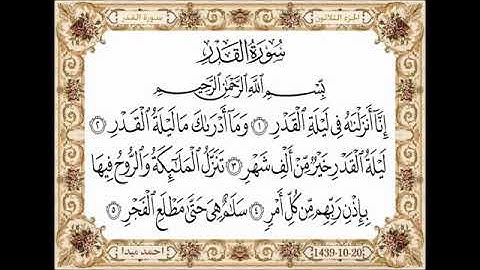 الجزء الثلاثون
سورة القدر
سُورَةُ الْقَدْرِ
بِسْمِ اللَّهِ الرَّحْمَٰنِ الرَّحِيمِ
إِنَّا أَنزَلْنَاهُ فِي لَيْلَةِ الْقَدْرِ ١ وَمَا أَدْرَىٰكَ مَا لَيْلَةُ الْقَدْرِ ٢
لَيْلَةُ الْقَدْرِ خَيْرٌ مِّنْ أَلْفِ شَهْرٍ ٣ تَنَزَّلُ الْمَلَٰئِكَةُ وَالرُّوحُ فِيهَا
بِإِذْنِ رَبِّهِم مِّن كُلِّ أَمْرٍ ٤ سَلَٰمٌ هِيَ حَتَّىٰ مَطْلَعِ الْفَجْرِ ٥
احمد ميدا
1439-10-20